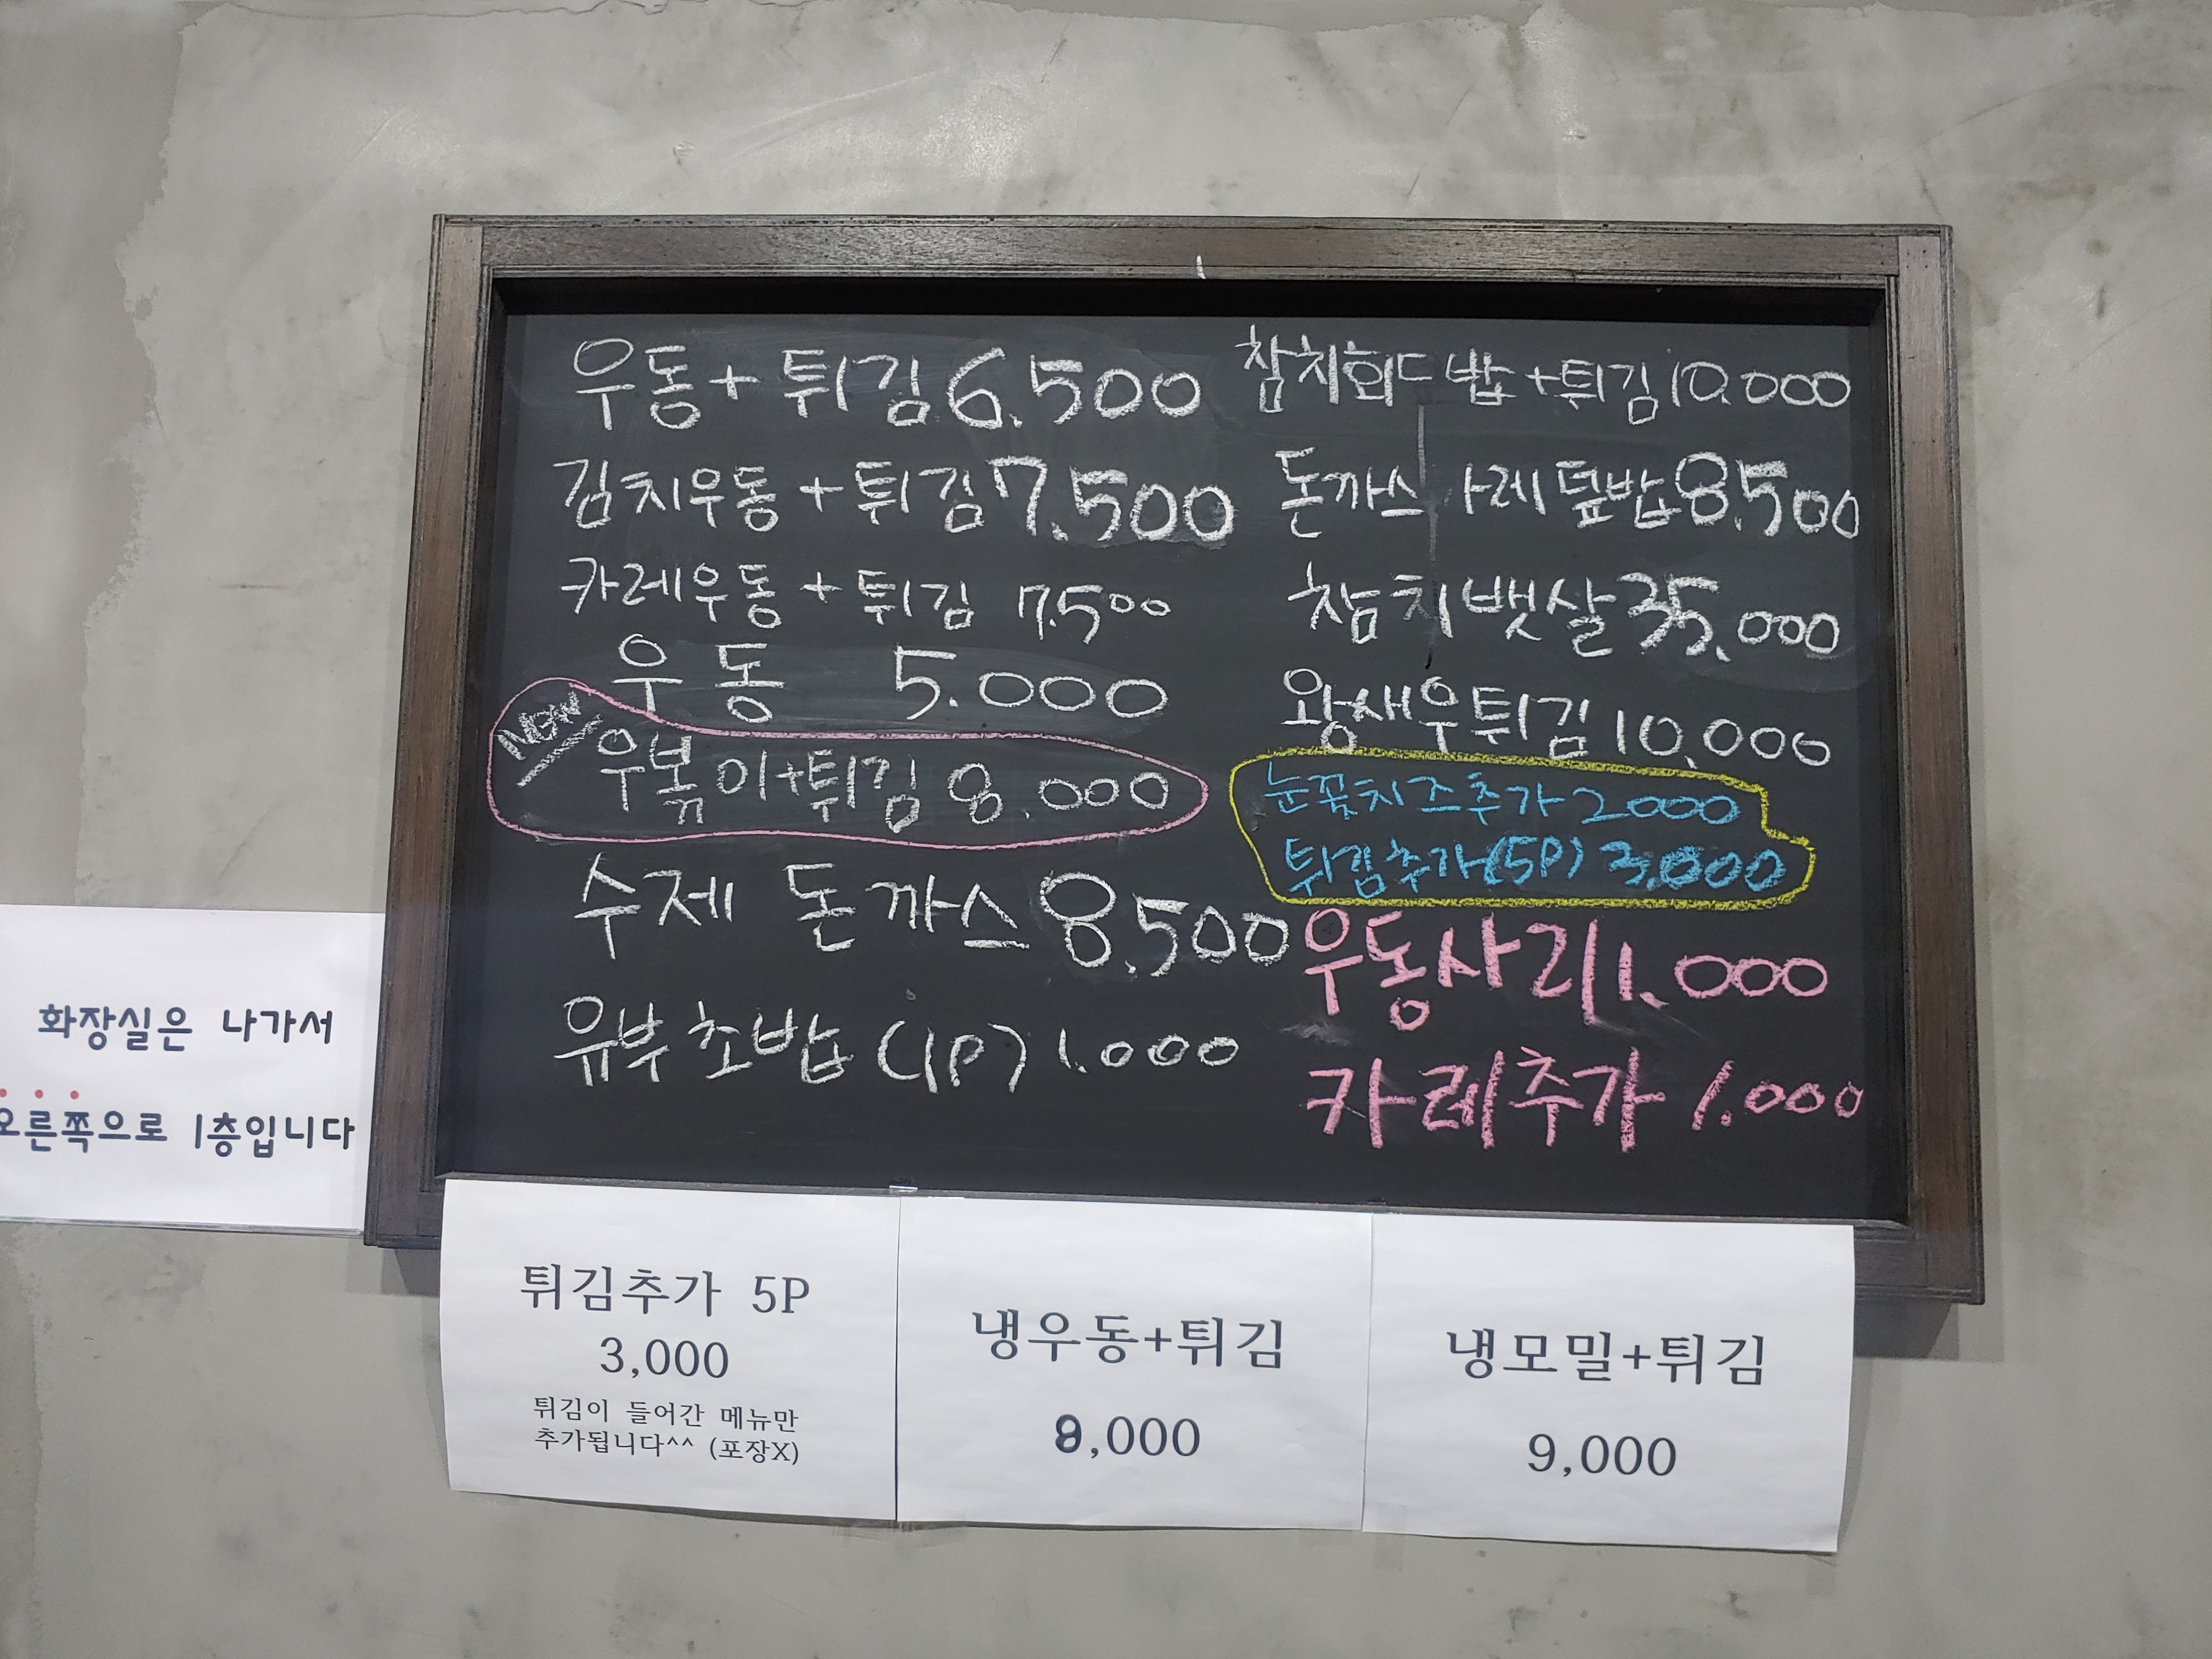 우동+튀김 6.500
김치우동+튀김 7.500
카레우동+튀김 7.500
우동 5.000
New
우볶이+튀김 8.000
수제 돈까스 8.500
유부초밥 (1P) 1.000
참치회드밥+튀김 10.000
돈까스 카레덮밥 8.500
참치뱃살 35,000
왕새우튀김 10,000
눈꽃치즈추가 2000
튀김추가(5P) 3,000
우동사리 1.000
카레추가 1.000
화장실은 나가서
오른쪽으로 1층입니다
튀김추가 5P
3,000
튀김이 들어간 메뉴만
추가됩니다^^ (포장X)
냉우동+튀김
8,000
냉모밀+튀김
9,000